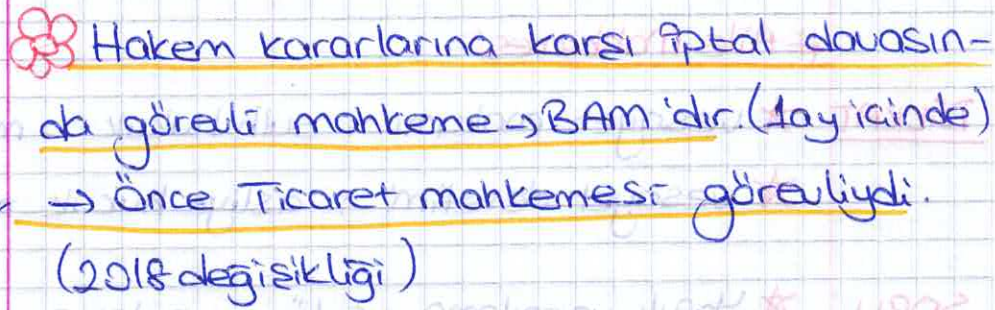 Hakem kararlarına karşı iptal davasın-
da görevli mahkeme → BAM'dır. (1 ay içinde)
→ Önce Ticaret mahkemesi görevliydi.
(2018 değişikliği)